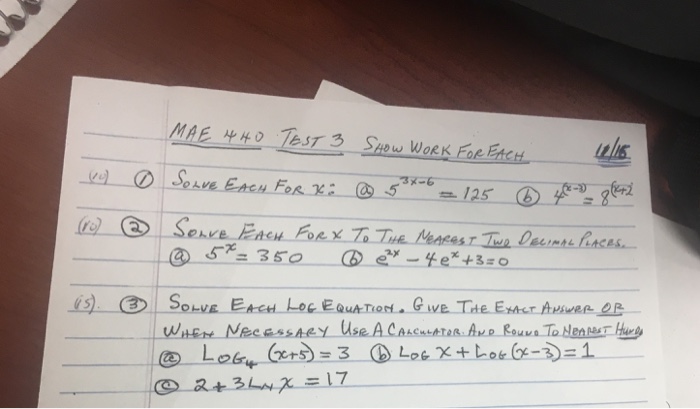 MAE 440 TEST 3 SHOW WORK FOR EACH
(10) ① SOLVE EACH FOR X: ⓐ 5^(3x-6) = 125 ⓑ 4^(x-3) = 8^(x+2)
(10) ② SOLVE EACH FOR X TO THE NEAREST TWO DECIMAL PLACES.
ⓐ 5^x = 350 ⓑ e^2x - 4e^x + 3 = 0
(15). ③ SOLVE EACH LOG EQUATION. GIVE THE EXACT ANSWER OR
WHEN NECESSARY USE A CALCULATOR AND ROUND TO NEAREST
ⓐ LOG₄ (x+5) = 3 ⓑ LOG X + LOG (x-3) = 1
ⓒ 2 + 3 LN X = 17